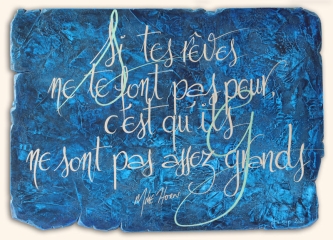 Si tes rêves
ne te font pas peur,
c'est qu'ils
ne sont pas assez grands
Mike Horn